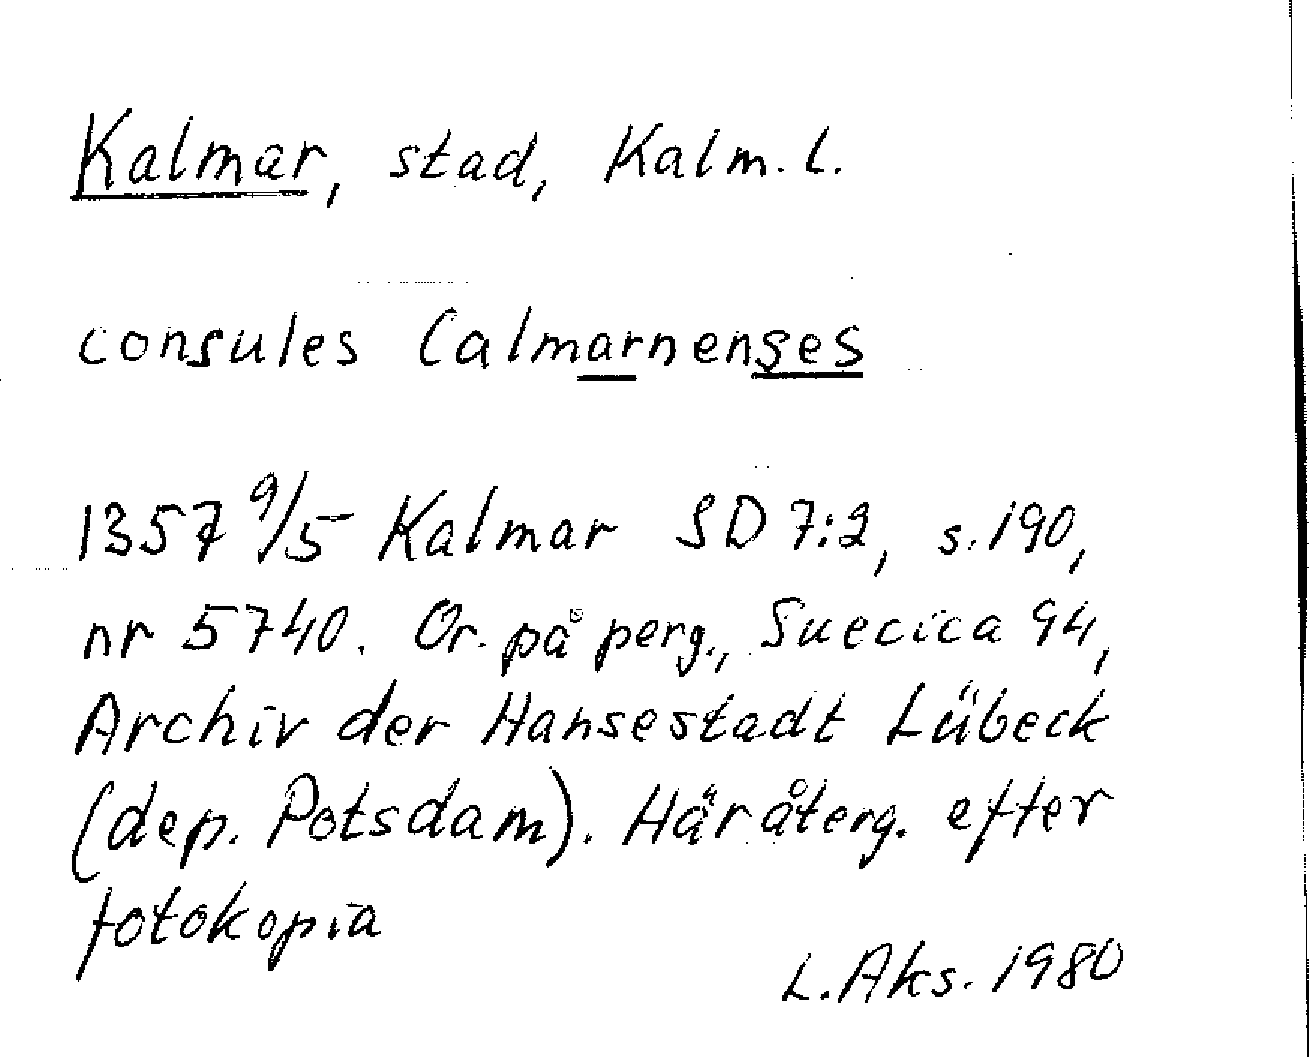 Kalmar, stad, Kalm. L.
consules Calmarnenses
1357 9/5 Kalmar SD 7:2, s. 190,
nr 5740. Or. på perg., Suecica 94,
Archiv der Hansestadt Lübeck
(dep. Potsdam). Här återg. efter
fotokopia
L. Aks. 1980